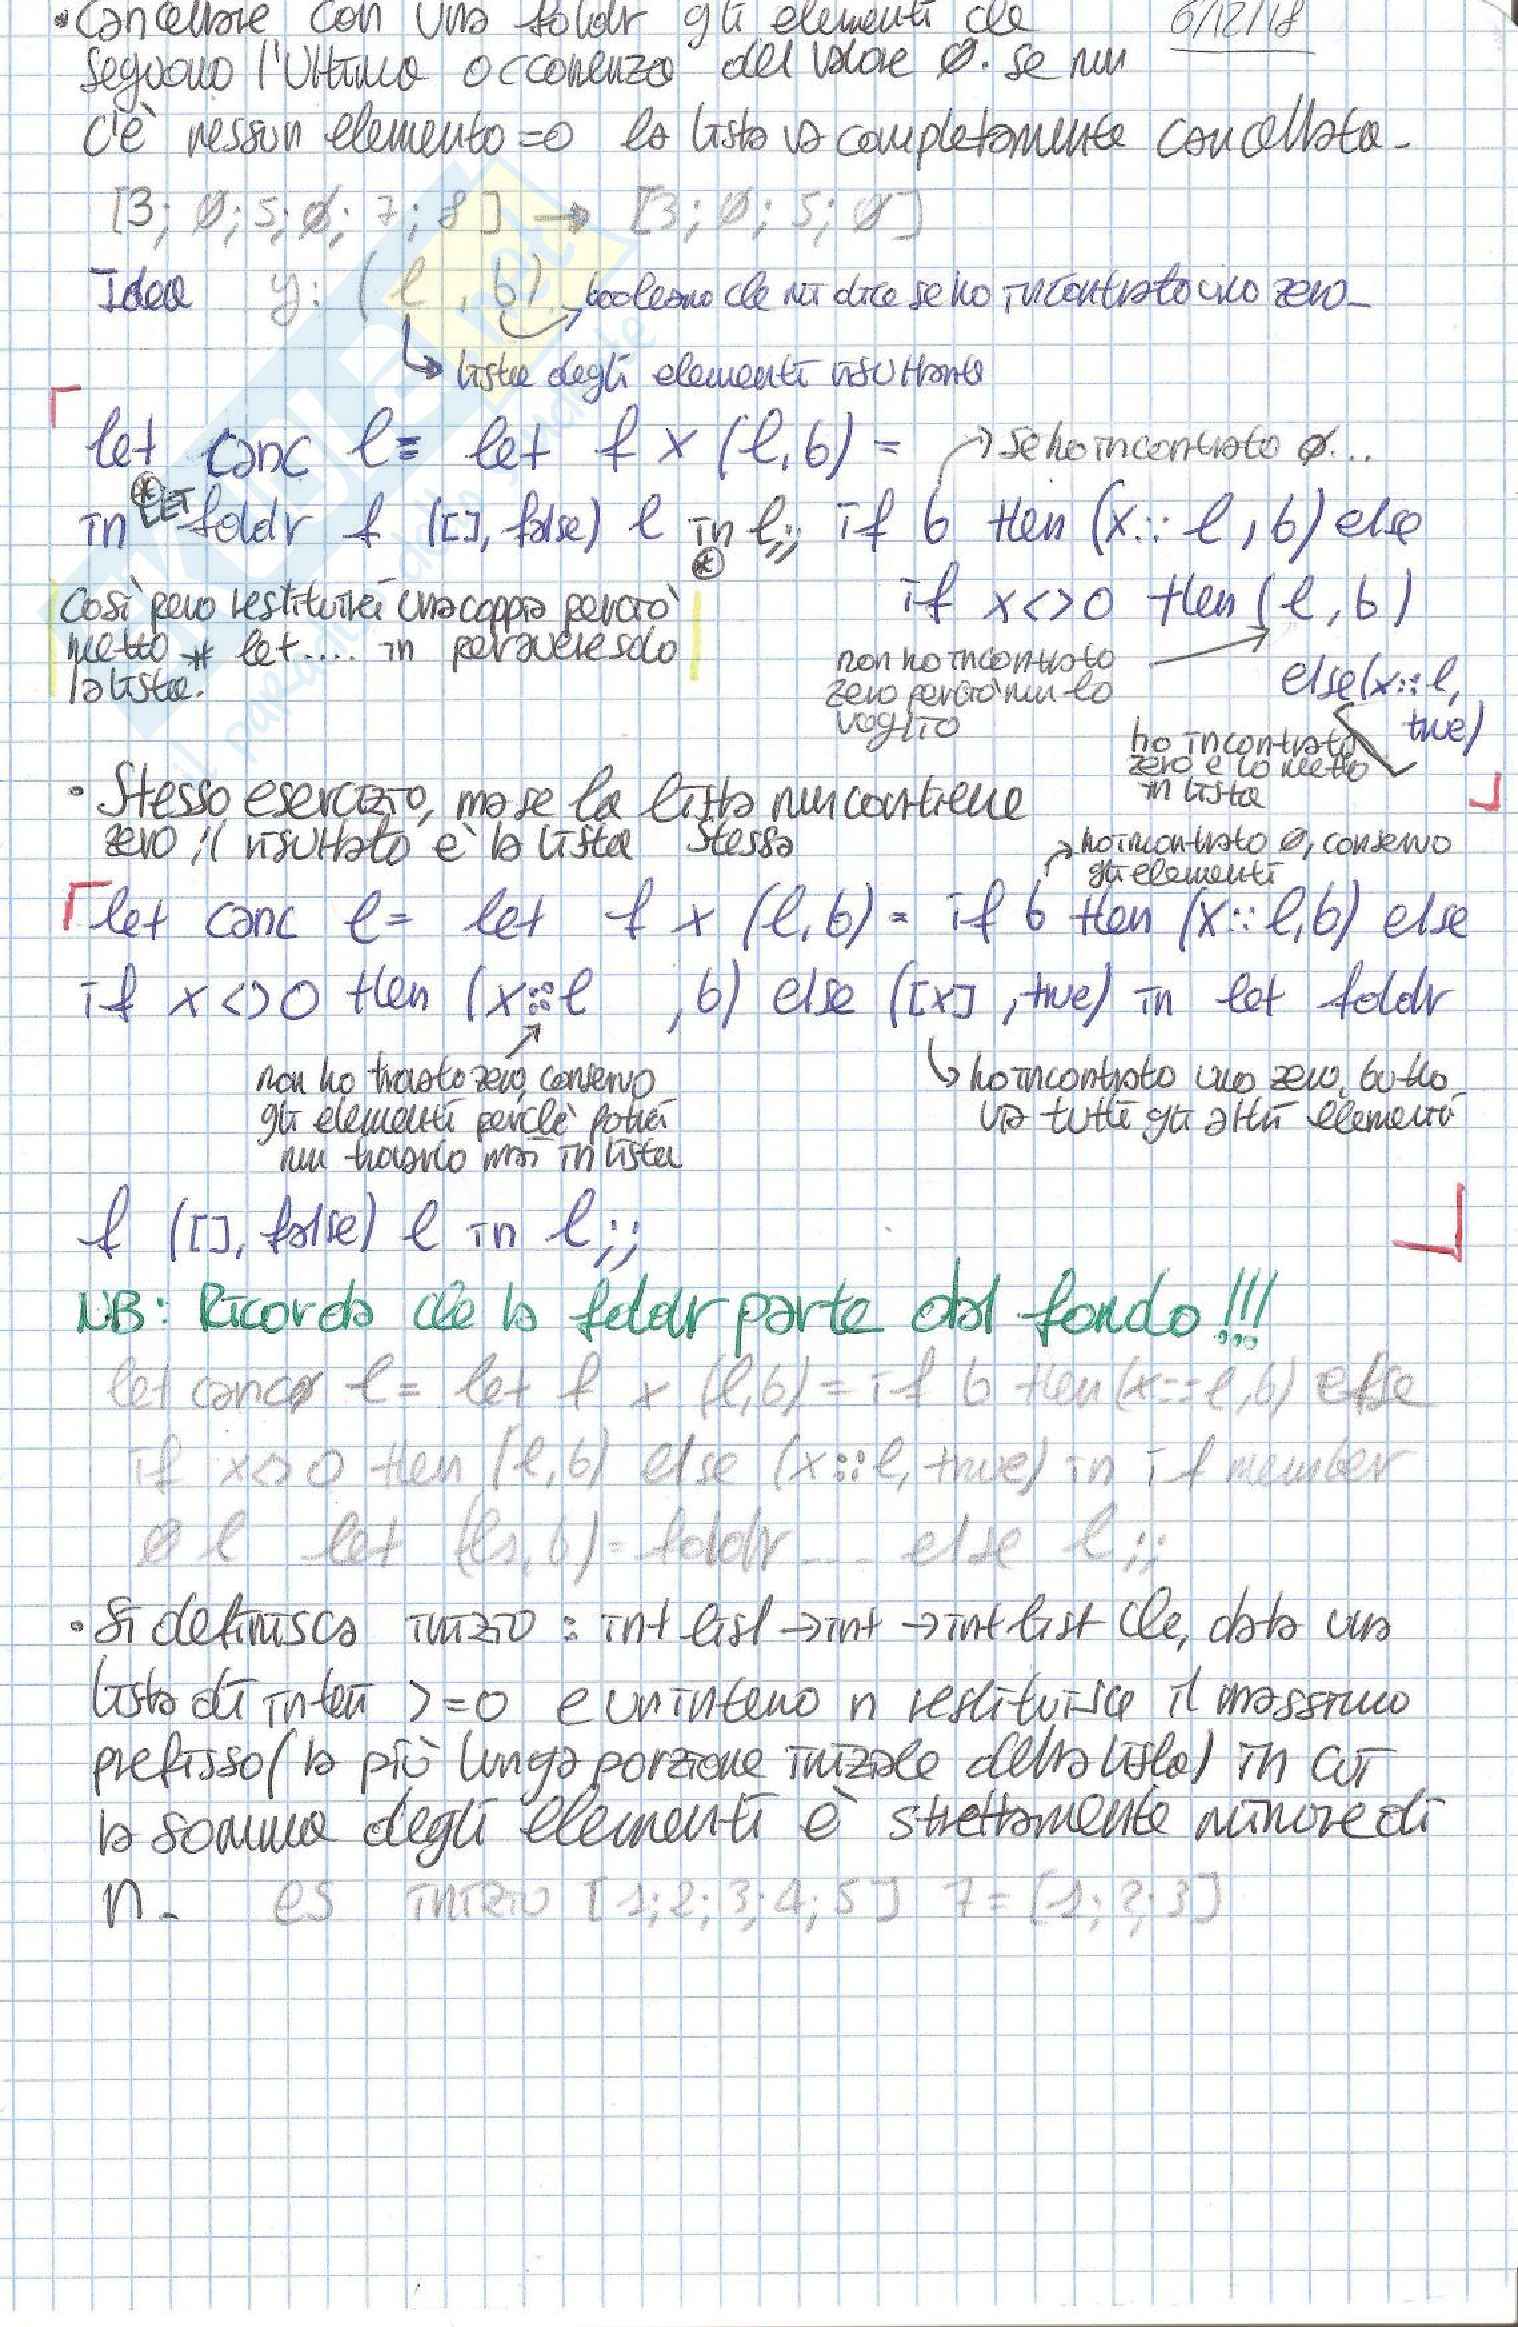 • Cancellare con una foldr gli elementi che 6/12/18
seguono l'ultima occorrenza del valore 0. se non
c'è nessun elemento =0 la lista va completamente cancellata-
[3; 0; 5; 0; 7; 8] → [3; 0; 5; 0]
Idea y: (l, b) booleano che mi dice se ho incontrato uno zero-
lista degli elementi risultante
let canc l = let f x (l, b) = → se ho incontrato 0...
in * LET foldr f ([], false) l in l;; if b then (x::l, b) else
*
Così però restituirei una coppia perciò if x<>0 then (l, b)
metto * let.... in per avere solo
la lista.
non ho incontrato
zero perciò non lo
voglio
else (x::l,
true)
ho incontrato
zero e lo metto
in lista
• Stesso esercizio, ma se la lista non contiene
zero, il risultato è la lista stessa
ho incontrato 0, conservo
gli elementi
let canc l = let f x (l, b) = if b then (x::l, b) else
if x<>0 then (x::l , b) else ([x], true) in let foldr
non ho trovato zero, conservo
gli elementi perchè potrei
non trovarlo mai in lista
ho incontrato uno zero, butto
via tutti gli altri elementi
f ([], false) l in l;;
NB: Ricorda che la foldr parte dal fondo!!!
let canc l = let f x (l, b) = if b then (x::l, b) else
if x<>0 then (l, b) else (x::l, true) in if member
0 l let (ls, b) = foldr .... else l;;
• Si definisca inizio : int list → int → int list che, data una
lista di interi >=0 e un intero n restituisce il massimo
prefisso (la più lunga porzione iniziale della lista) in cui
la somma degli elementi è strettamente minore di
n. es inizio [1; 2; 3; 4; 5] 7 = [1; 2; 3]